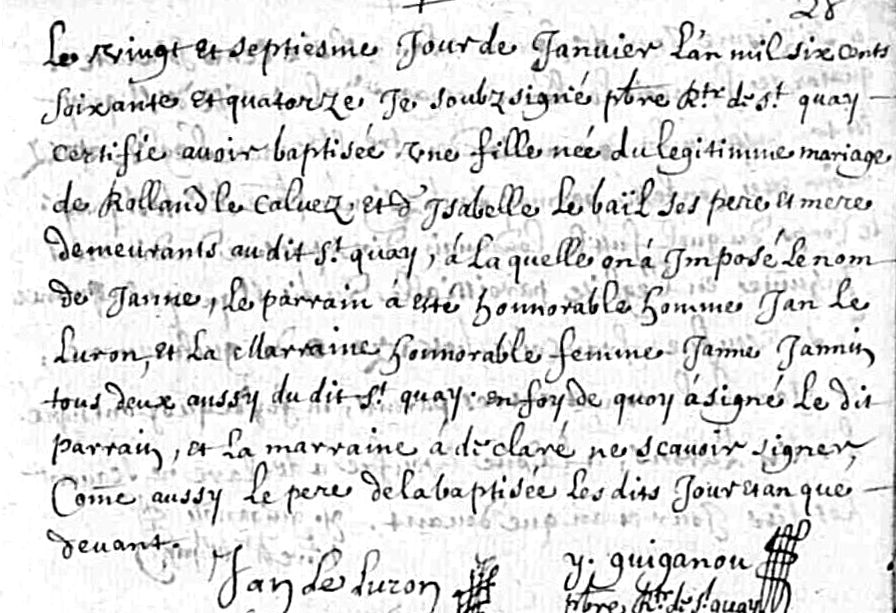 28
Le vingt et septiesme Jour de Janvier L'an mil six cents
soixante et quatorze Je soubzsigné pbre Rtr de st quay
certifie avoir baptisée vne fille née du legitimme mariage
de Rolland le calvez et d'Isabelle Le baïl ses pere et mere
demeurants au dit st quay, á La quelle on á Imposé Le nom
de Janne, Le parrain á esté honnorable homme Jan Le
Luron, et La Marraine honnorable femme Janne Jannin
tous deux aussy du dit st quay. en foy de quoy á signé Le dit
parrain, et La marraine á déclaré ne scavoir signer,
Come aussy Le pere de la baptisée Les dits Jour et an que
devant.
Jan Le Luron
y. guiganou
pbre, Rtr de st quay